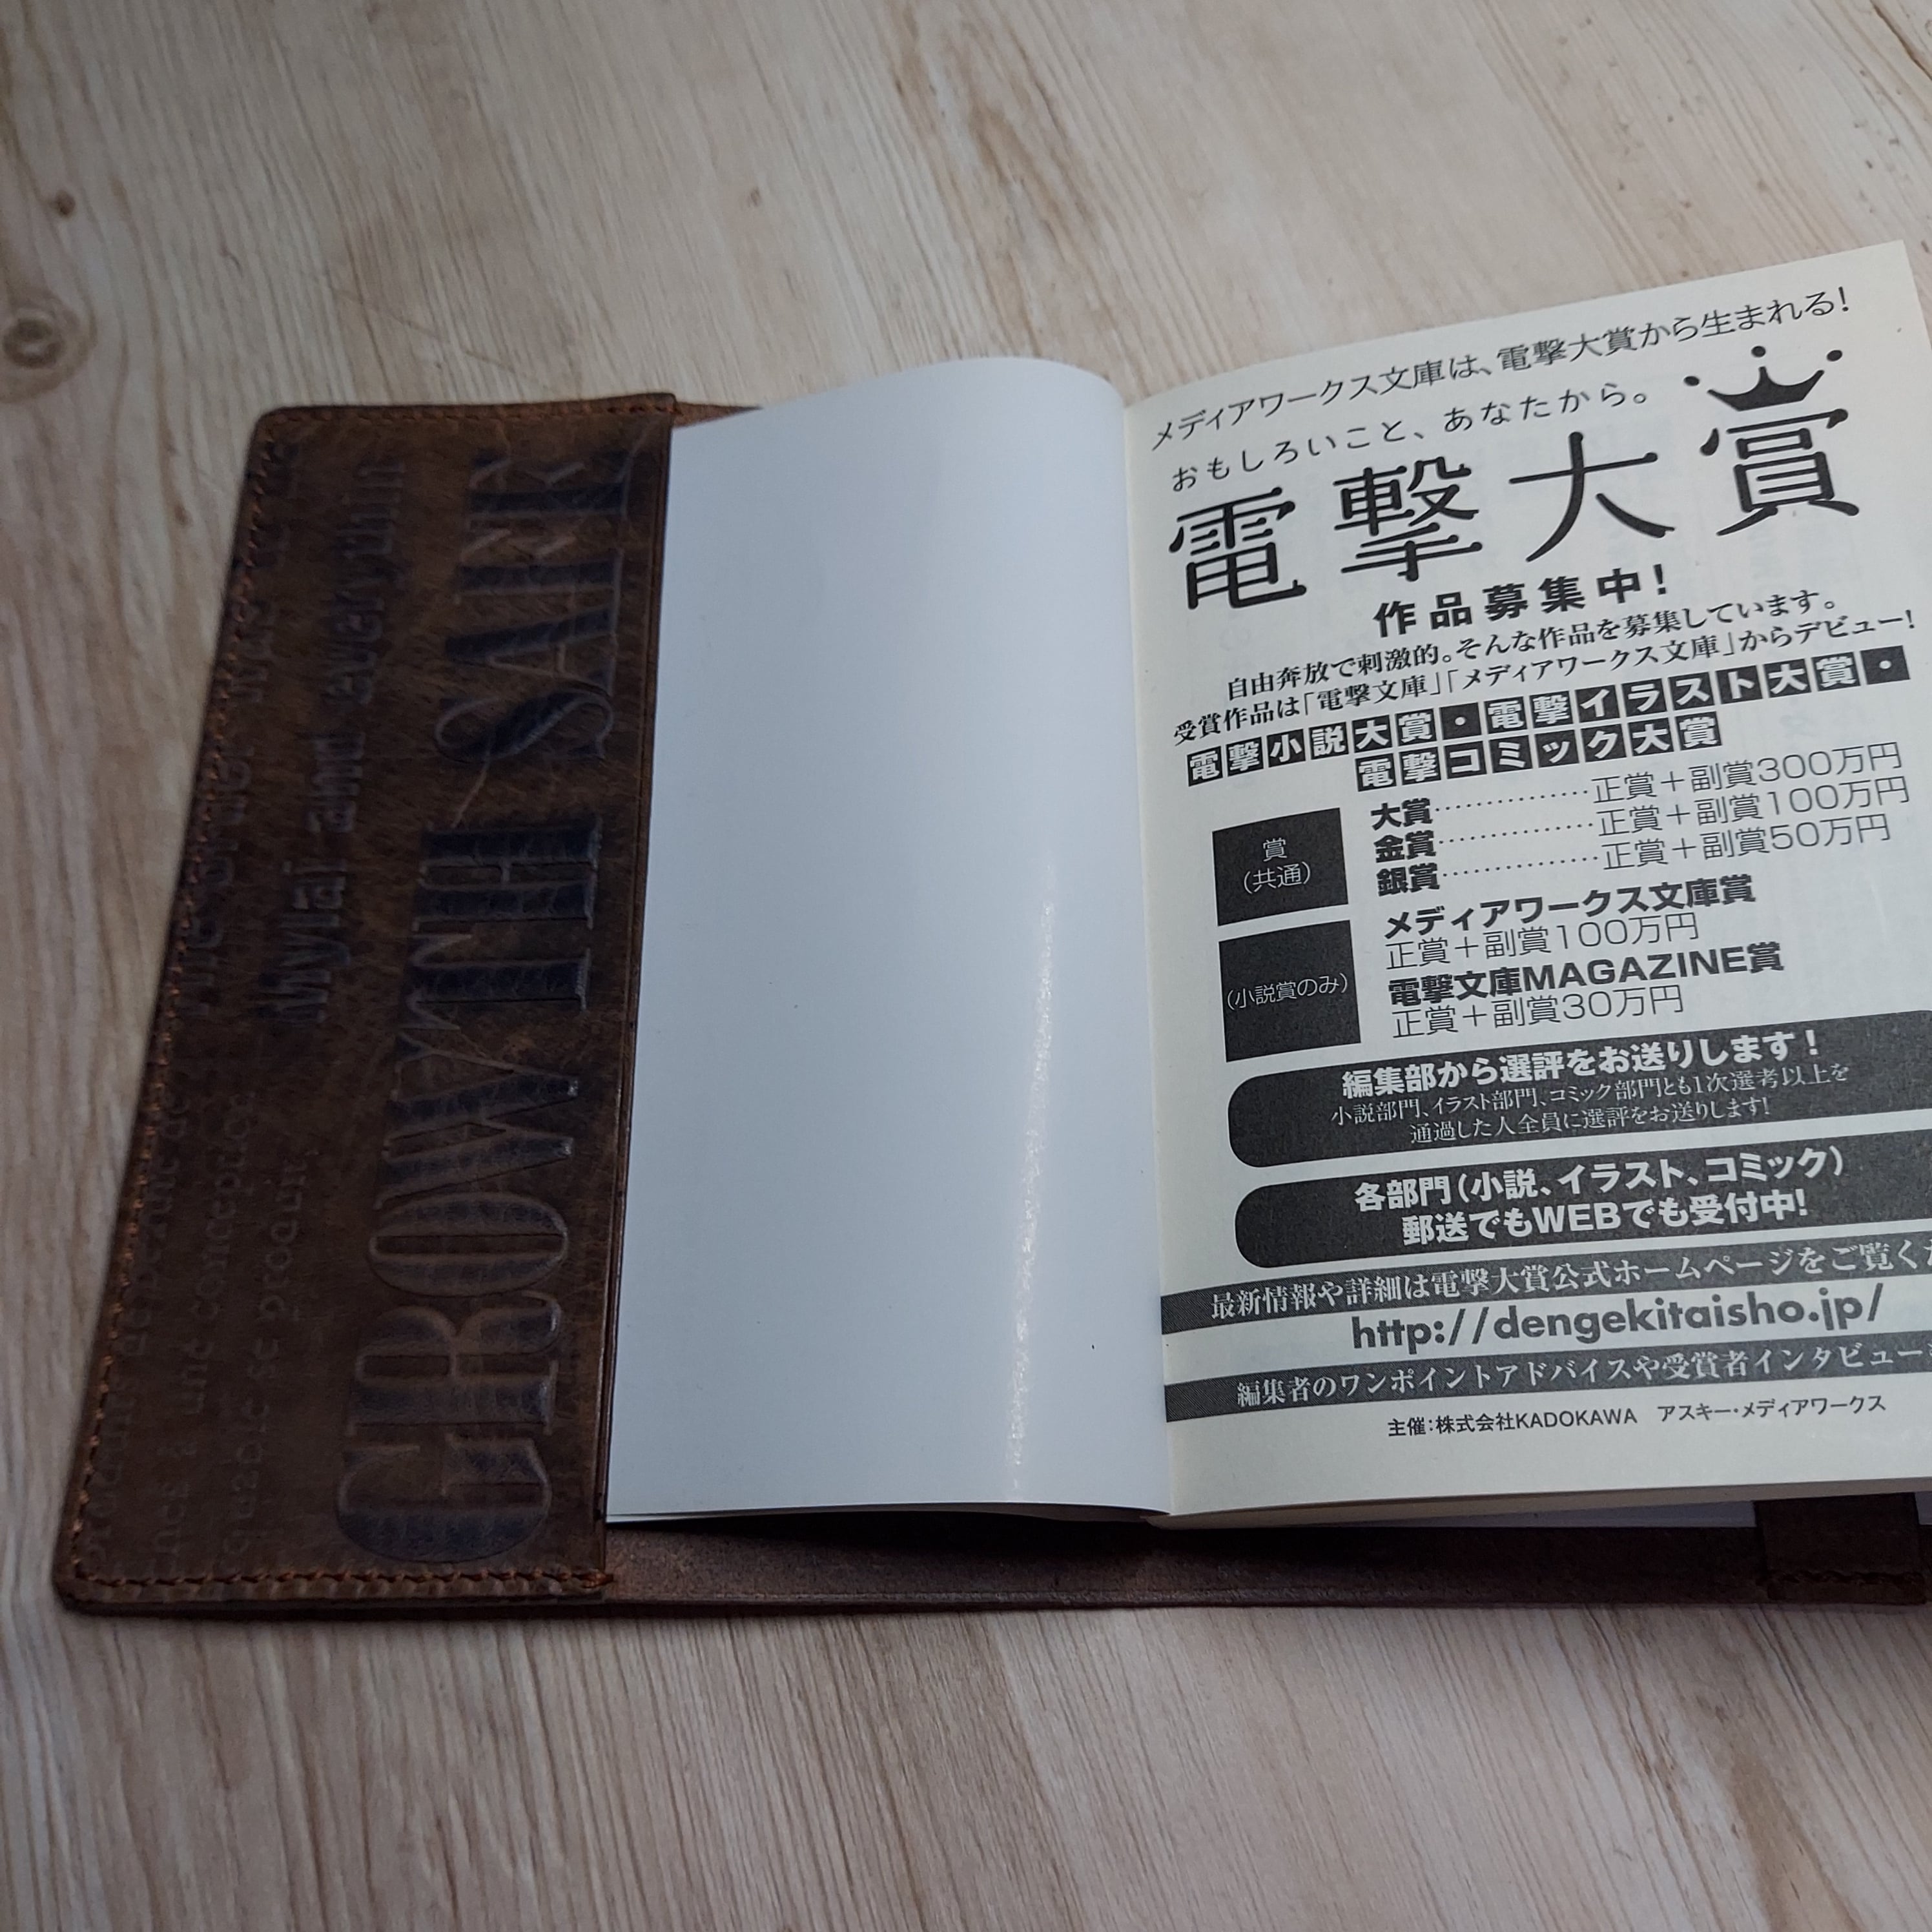 GROWTH SAFE
メディアワークス文庫は、電撃大賞から生まれる!
おもしろいこと、あなたから。
電撃大賞
作品募集中!
自由奔放で刺激的。そんな作品を募集しています。
受賞作品は「電撃文庫」「メディアワークス文庫」からデビュー!
電撃小説大賞・電撃イラスト大賞・
電撃コミック大賞
賞
(共通)
大賞………………正賞+副賞300万円
金賞………………正賞+副賞100万円
銀賞………………正賞+副賞50万円
(小説賞のみ)
メディアワークス文庫賞
正賞+副賞100万円
電撃文庫MAGAZINE賞
正賞+副賞30万円
編集部から選評をお送りします!
小説部門、イラスト部門、コミック部門とも1次選考以上を
通過した人全員に選評をお送りします!
各部門(小説、イラスト、コミック)
郵送でもWEBでも受付中!
最新情報や詳細は電撃大賞公式ホームページをご覧くだ
http://dengekitaisho.jp/
編集者のワンポイントアドバイスや受賞者インタビュー
主催:株式会社KADOKAWA アスキー・メディアワークス